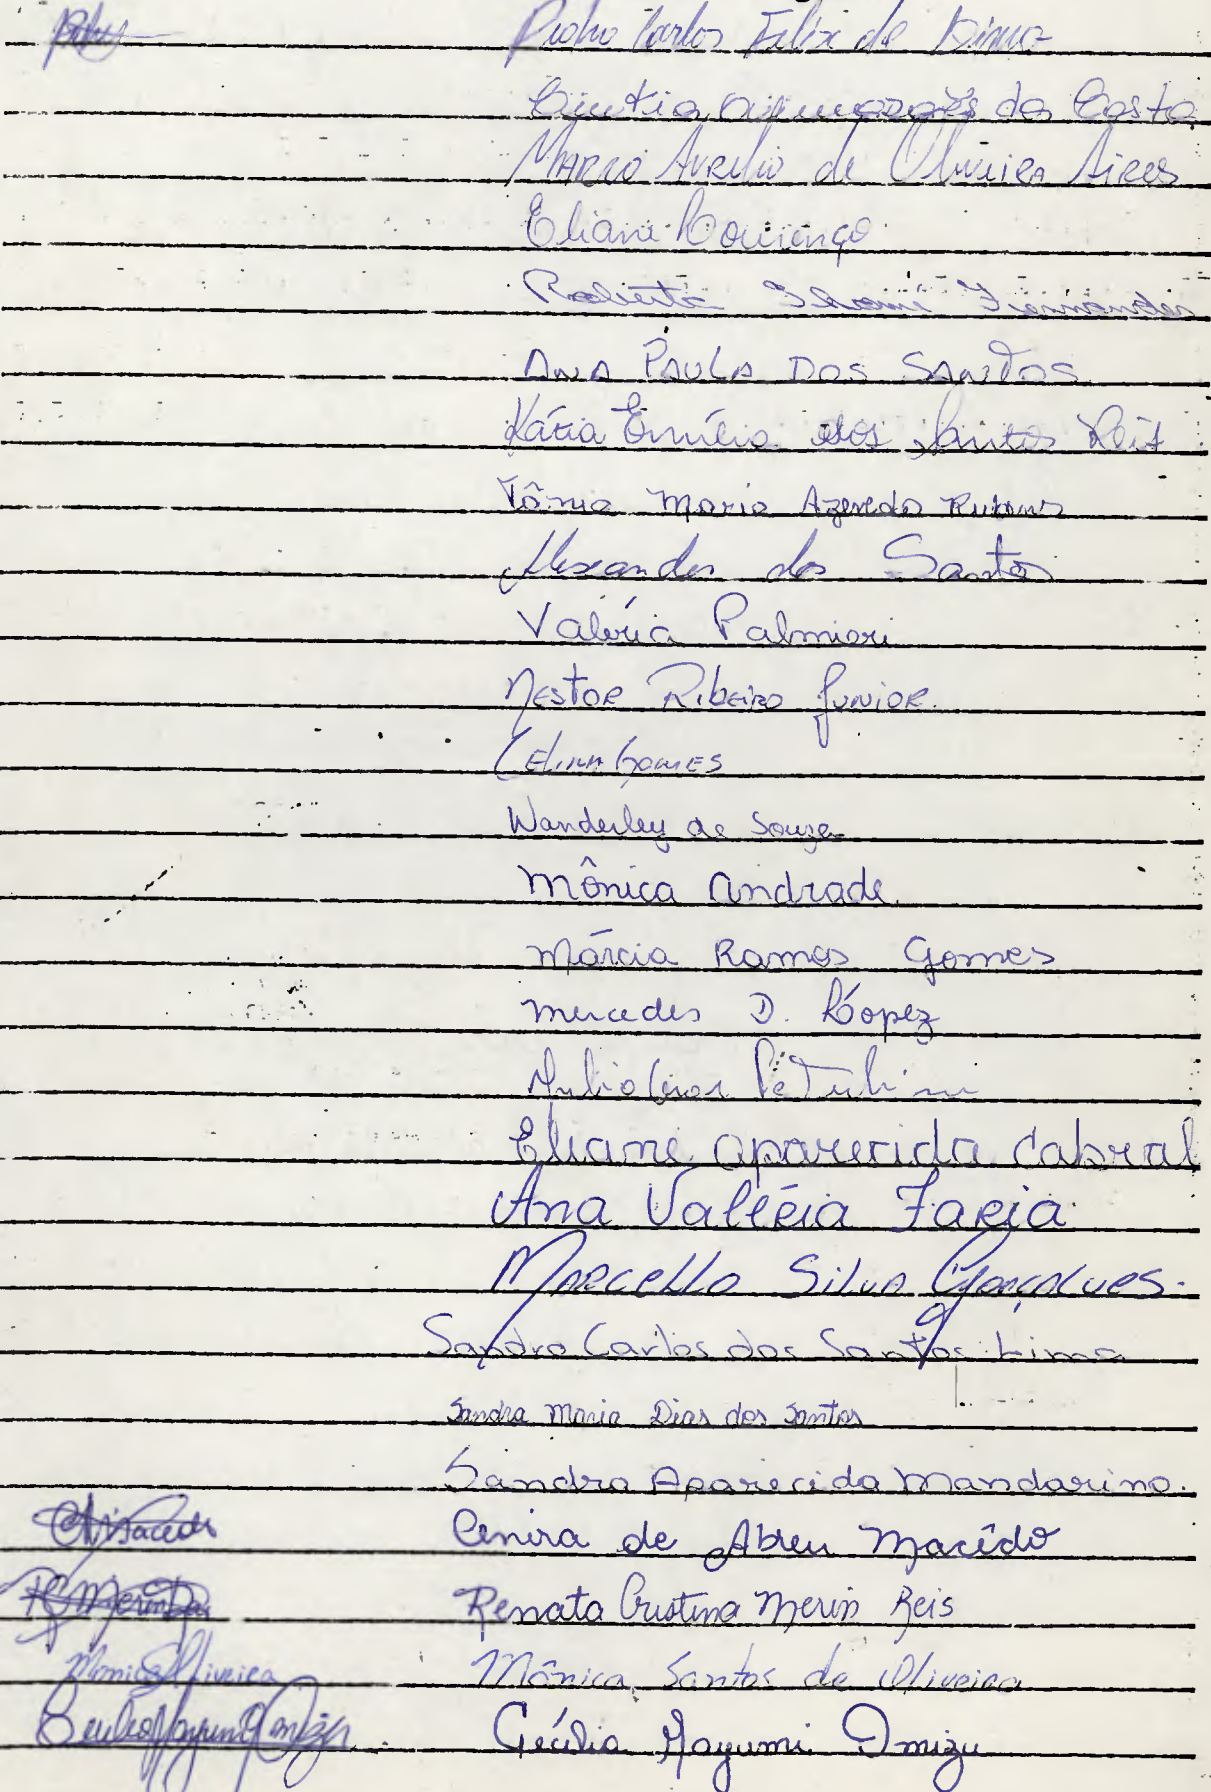 Pedro Carlos Felix de
Cintia da Costa
MARCO AURELIO de OLIVEIRA AIRES
Eliane Lourenço
Roberta Fernandes
ANA PAULA DOS SANTOS
Kátia Emília dos Santos Reis
Tânia Maria Azevedo
Alexandre dos Santos
Valéria Palmieri
NESTOR RIBEIRO JUNIOR.
CELINA GOMES
Wanderley de Souza
Mônica Andrade.
Márcia Ramos Gomes
Mercedes D. López
Julio Cesar
Eliane Aparecida Cabral
Ana Valéria Faria
MARCELLO SILVA GONÇALVES.
Sandro Carlos dos Santos Lima
Sandra Maria Dias dos Santos
Sandra Aparecida Mandarino.
Cenira de Abreu Macêdo
Renata Cristina Merin Reis
Monica Oliveira Mônica Santos de Oliveira
Cecília Mayumi Omizu